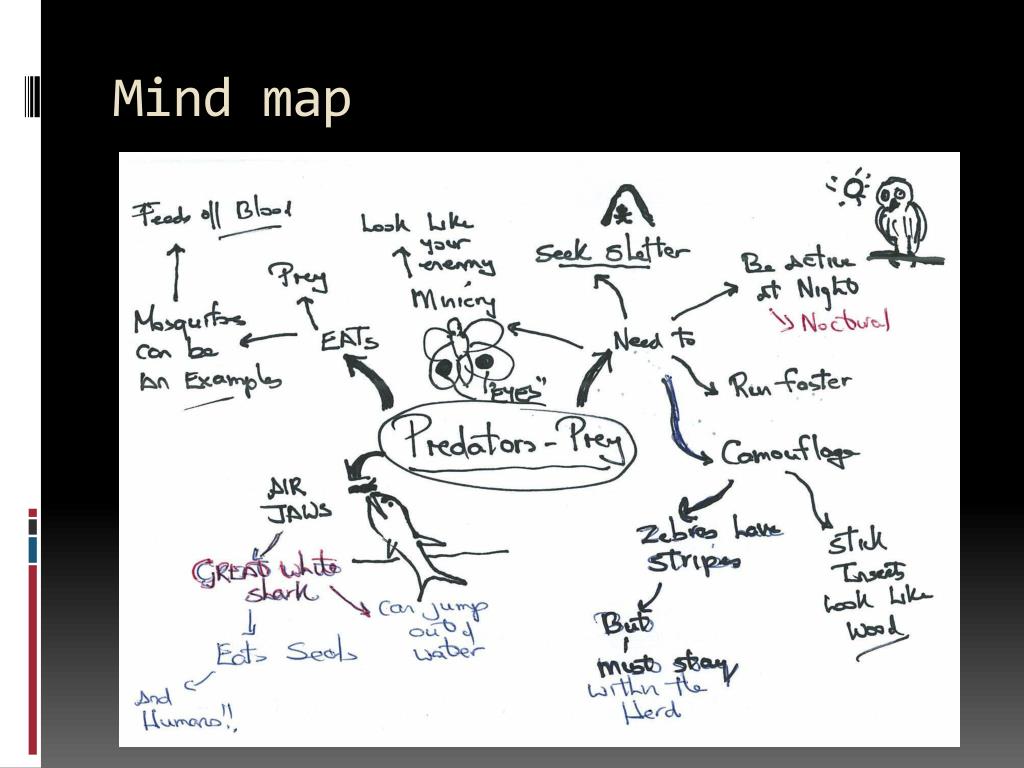 Mind map
Feeds off Blood
Mosquitos
can be
An Examples
Prey
EATs
Look Like
your
enemy
Mimicry
"EYES"
Seek Sletter
Need to
Be Active
at Night
Noctural
Run faster
Predators - Prey
Camouflage
Zebras have
stripes
But
must stay
within the
Herd
Stick
Insects
Look Like
Wood
AIR
JAWS
GREAT white
shark
Can jump
out of
water
Eats Seals
And
Humans!!